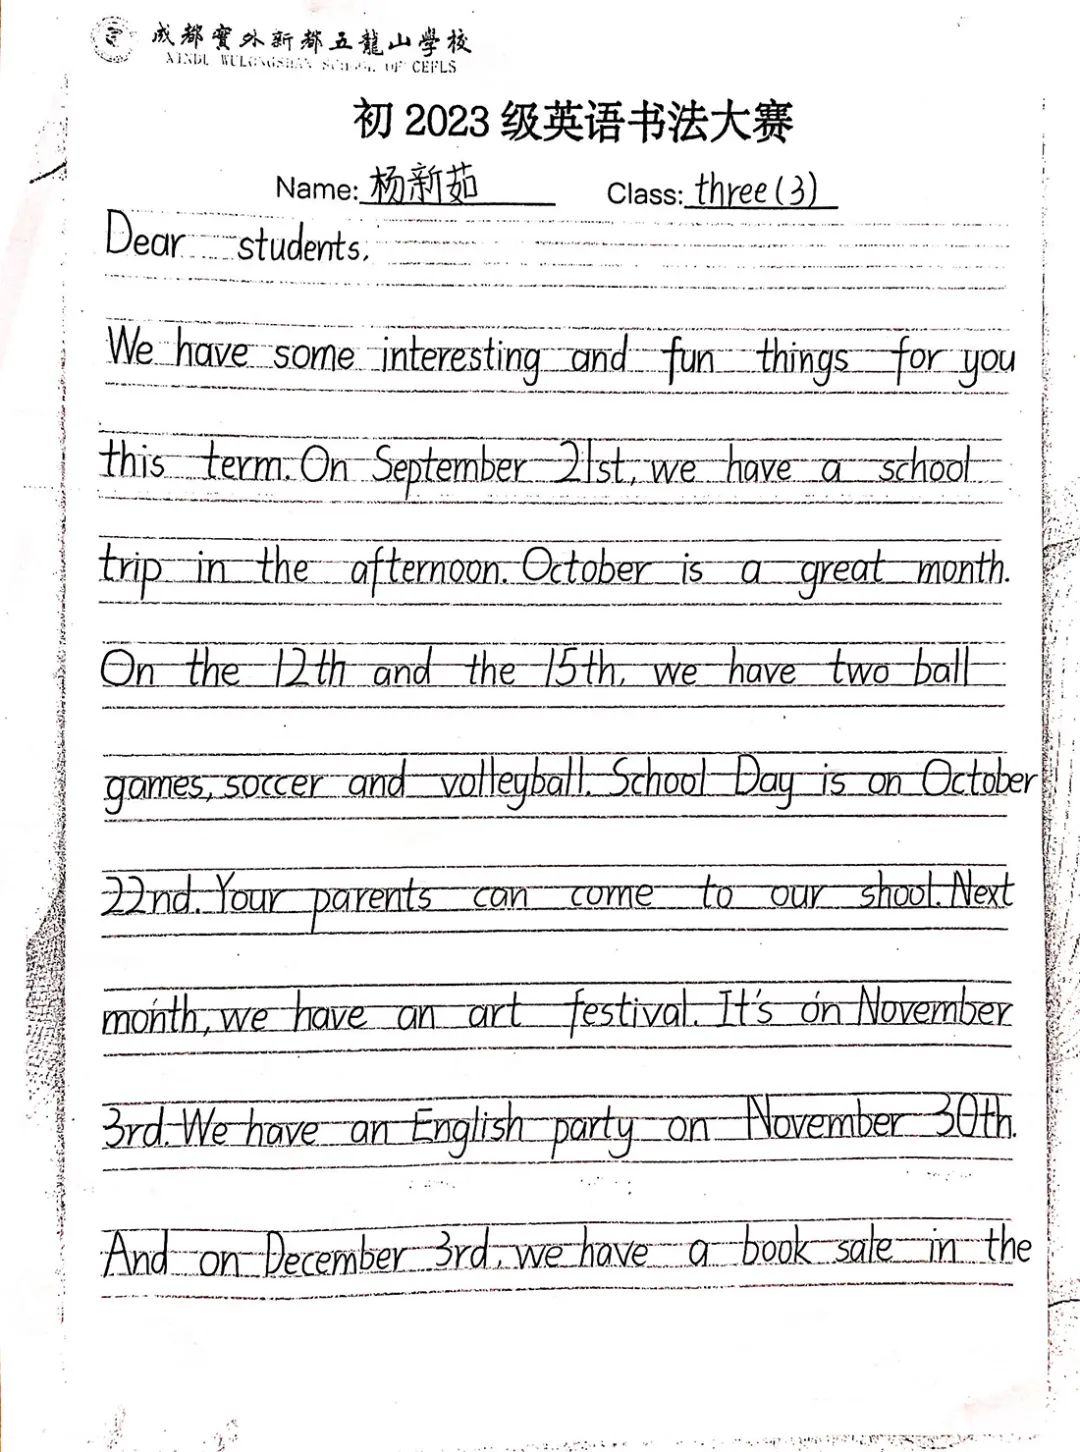 成都實外新都五龍山學校
XINDU WULONGSHAN SCHOOL OF CEFLS
初 2023 级英语书法大赛
Name: 杨新茹 Class: three(3)
Dear students,
We have some interesting and fun things for you
this term. On September 21st, we have a school
trip in the afternoon. October is a great month.
On the 12th and the 15th, we have two ball
games, soccer and volleyball. School Day is on October
22nd. Your parents can come to our shool. Next
month, we have an art festival. It's on November
3rd. We have an English party on November 30th.
And on December 3rd, we have a book sale in the